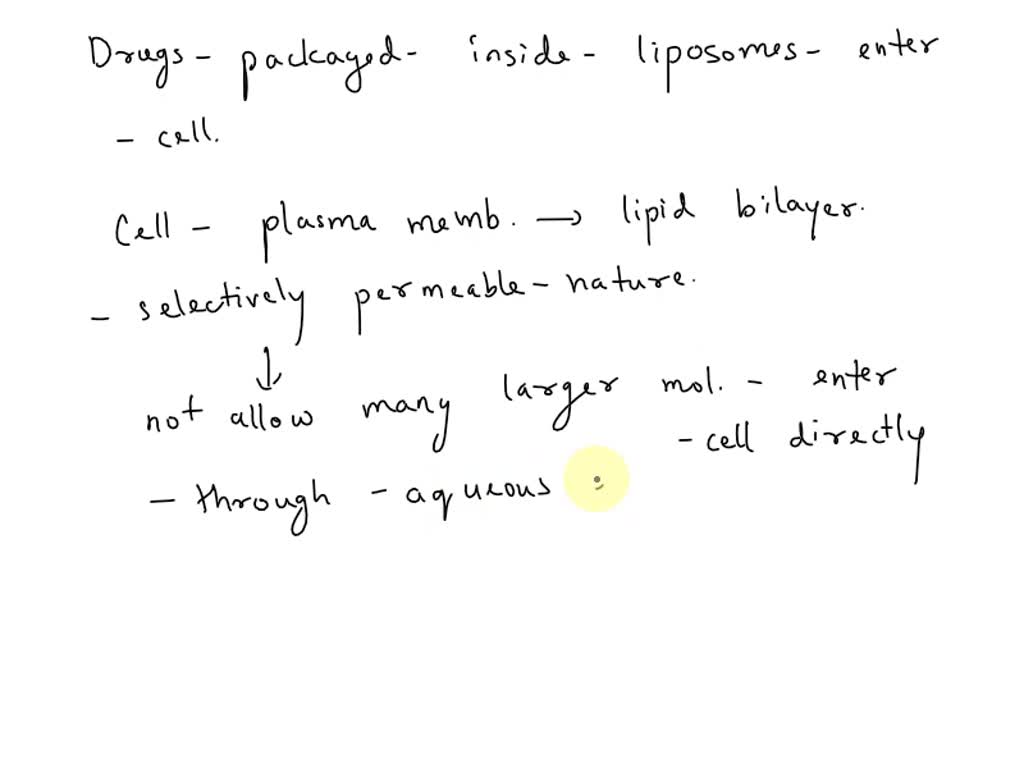 Drugs - packaged - inside - liposomes - enter
- cell.
Cell - plasma memb. → lipid bilayer.
- selectively permeable - nature.
↓
not allow many larger mol. - enter
- cell directly
- through - aqueous